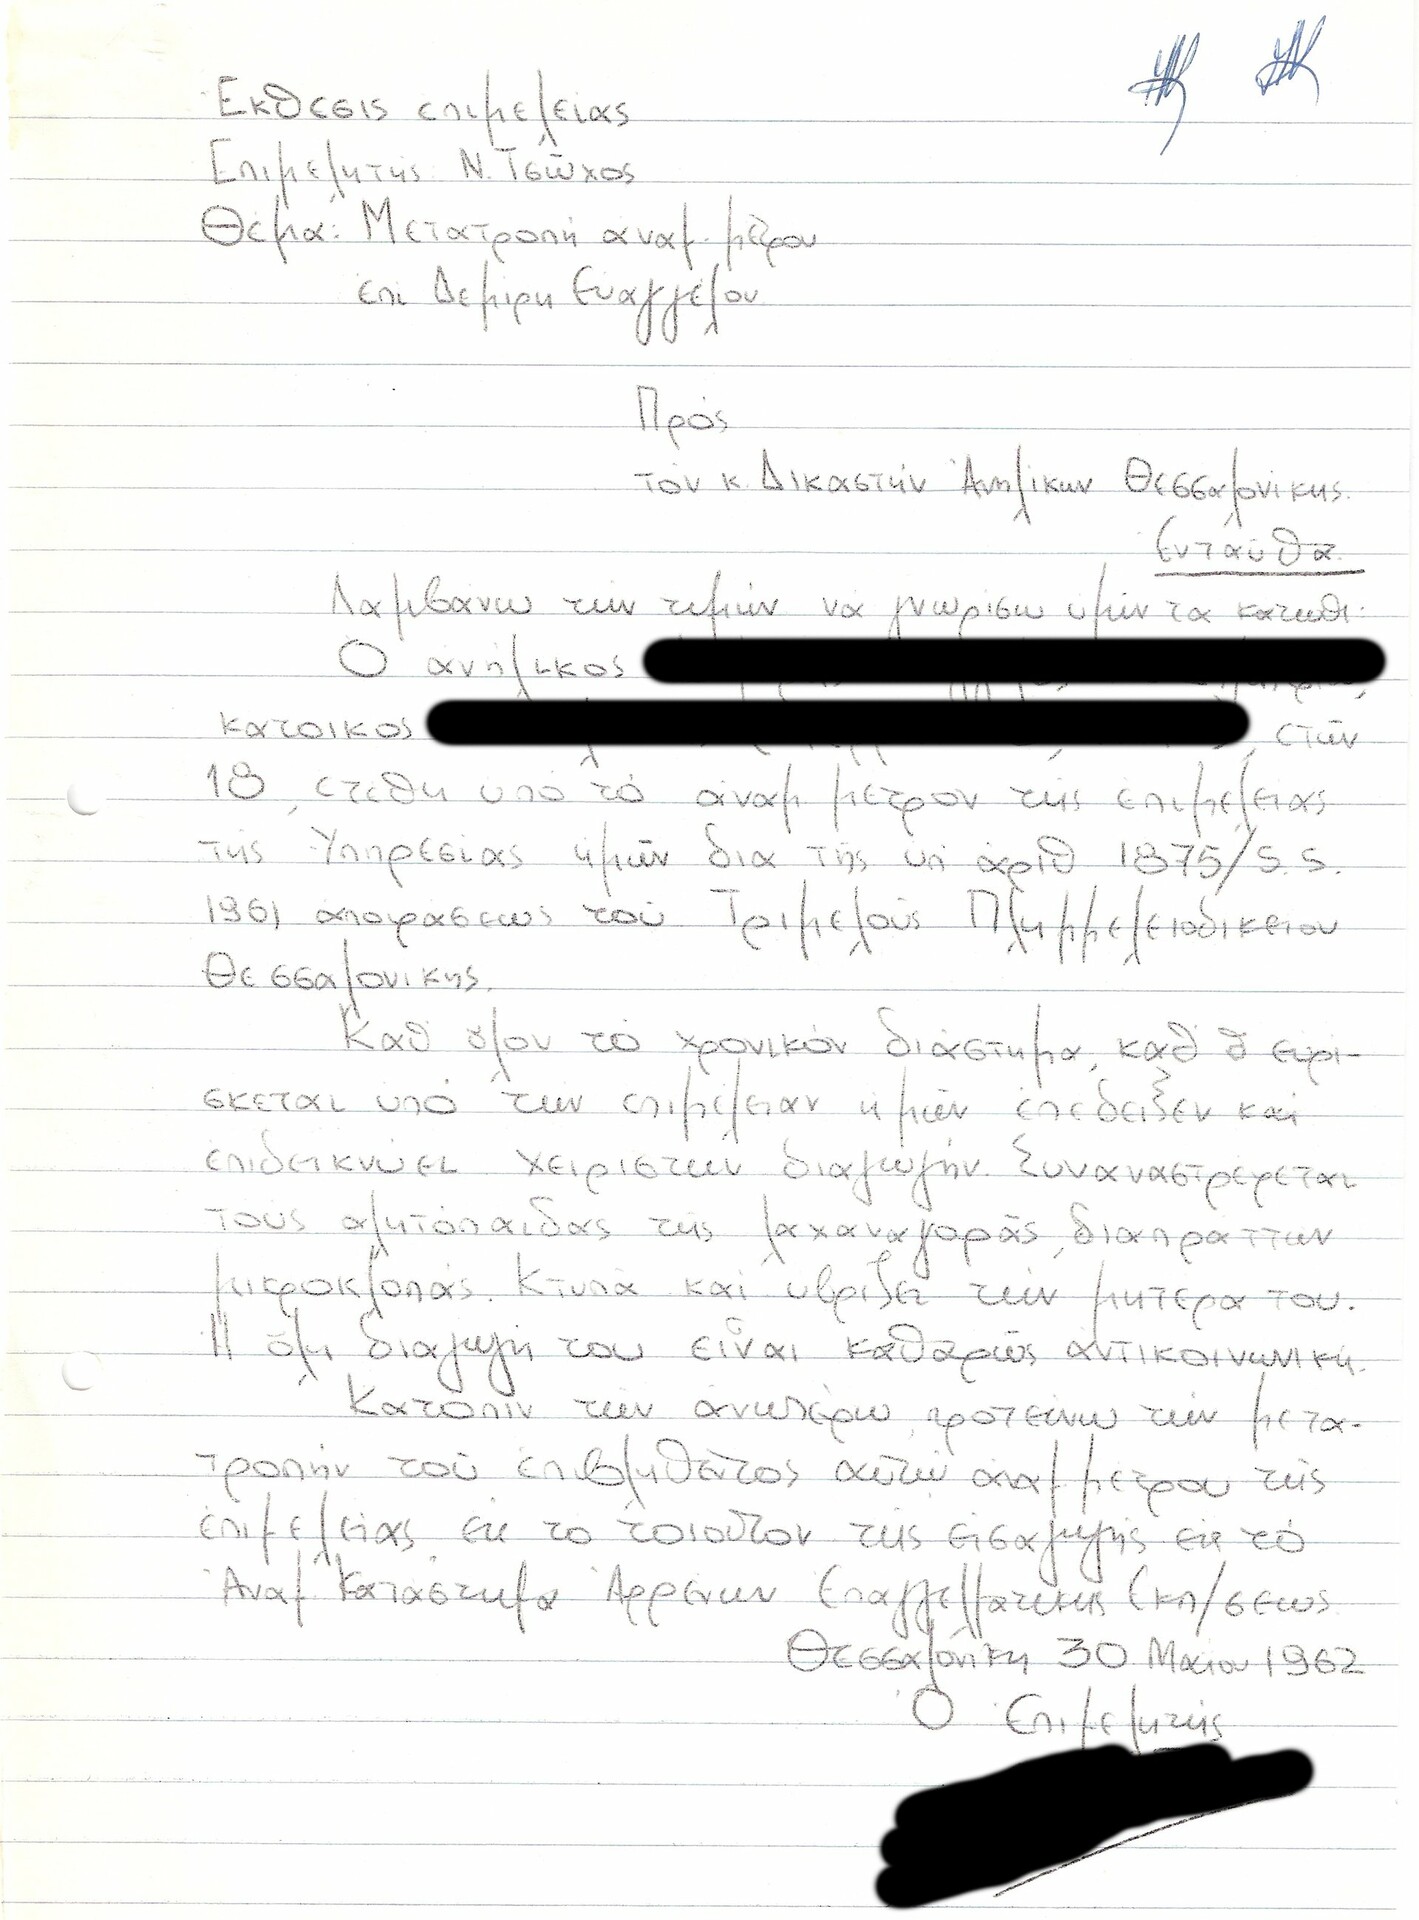 Εκθεσις επιμελειας
Επιμελητης Ν. Τσῶχος
Θέμα: Μετατροπή αναμ. μέτρου
επι Δεμιρη Ευαγγέλου
Πρὸς
τὸν κ. Δικαστὴν Ἀνηλίκων Θεσσαλονίκης.
Ενταυθα
Λαμβάνω τὴν τιμὴν νὰ γνωρίσω ὑμῖν τα κατωθι.
Ο ανήλικος
κατοικος , ετῶν
18, ετεθη υπὸ τὸ αναμ μετρον τῆς επιμελειας
τῆς Υπηρεσίας ημῶν δια τῆς υπ αριθ 1875/5.5.
1961 αποφάσεως τοῦ Τριμελοῦς Πλημμελειοδικειου
Θεσσαλονικης.
Καθ ὅλον τὸ χρονικὸν διάστημα, καθ ὃ ευρί-
σκεται υπὸ τὴν επιμέλειαν ημῶν ἐπεδειξεν και
ἐπιδεικνύει χειρίστην διαγωγήν. Συναναστρέφεται
τοὺς αλητόπαιδας τῆς λαχαναγορᾶς, διαπράττων
μικροκλοπάς. Κτυπᾶ καὶ υβριζει τὴν μητερα του.
Η ὅλη διαγωγή του εἶναι καθαρῶς αντικοινωνική.
Κατόπιν τῶν ἀνωτέρω προτείνω τὴν μετα-
τροπὴν τοῦ ἐπιβληθέντος αὐτῷ αναμ μέτρου τῆς
ἐπιμελείας εἰς το τοιοῦτον τῆς εἰσαγωγῆς εἰς τὸ
Ἀναμ Κατάστημα Ἀρρένων Επαγγελματικης Εκπ/σεως
Θεσσαλονίκη 30 Μαιου 1962
Ὁ Επιμελητής